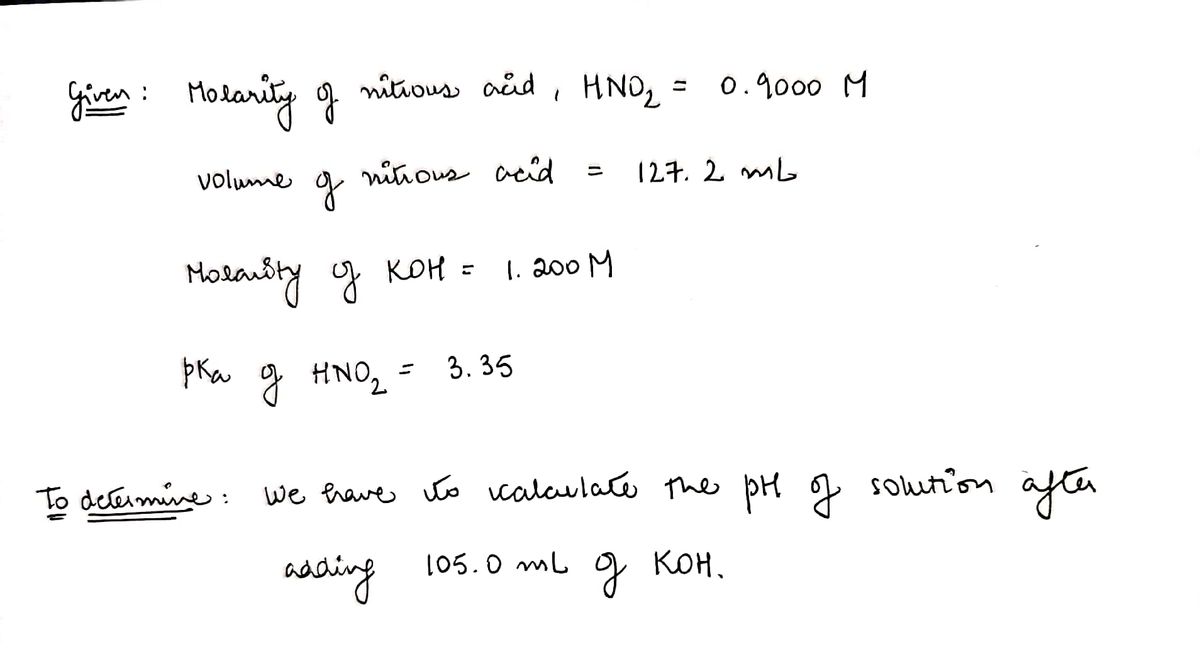 Given : Molarity of nitrous acid , HNO₂ = 0.9000 M
volume of nitrous acid = 127.2 mL
Molarity of KOH = 1.200 M
pKa of HNO₂ = 3.35
To determine : We have to calculate the pH of solution after
adding 105.0 mL of KOH.